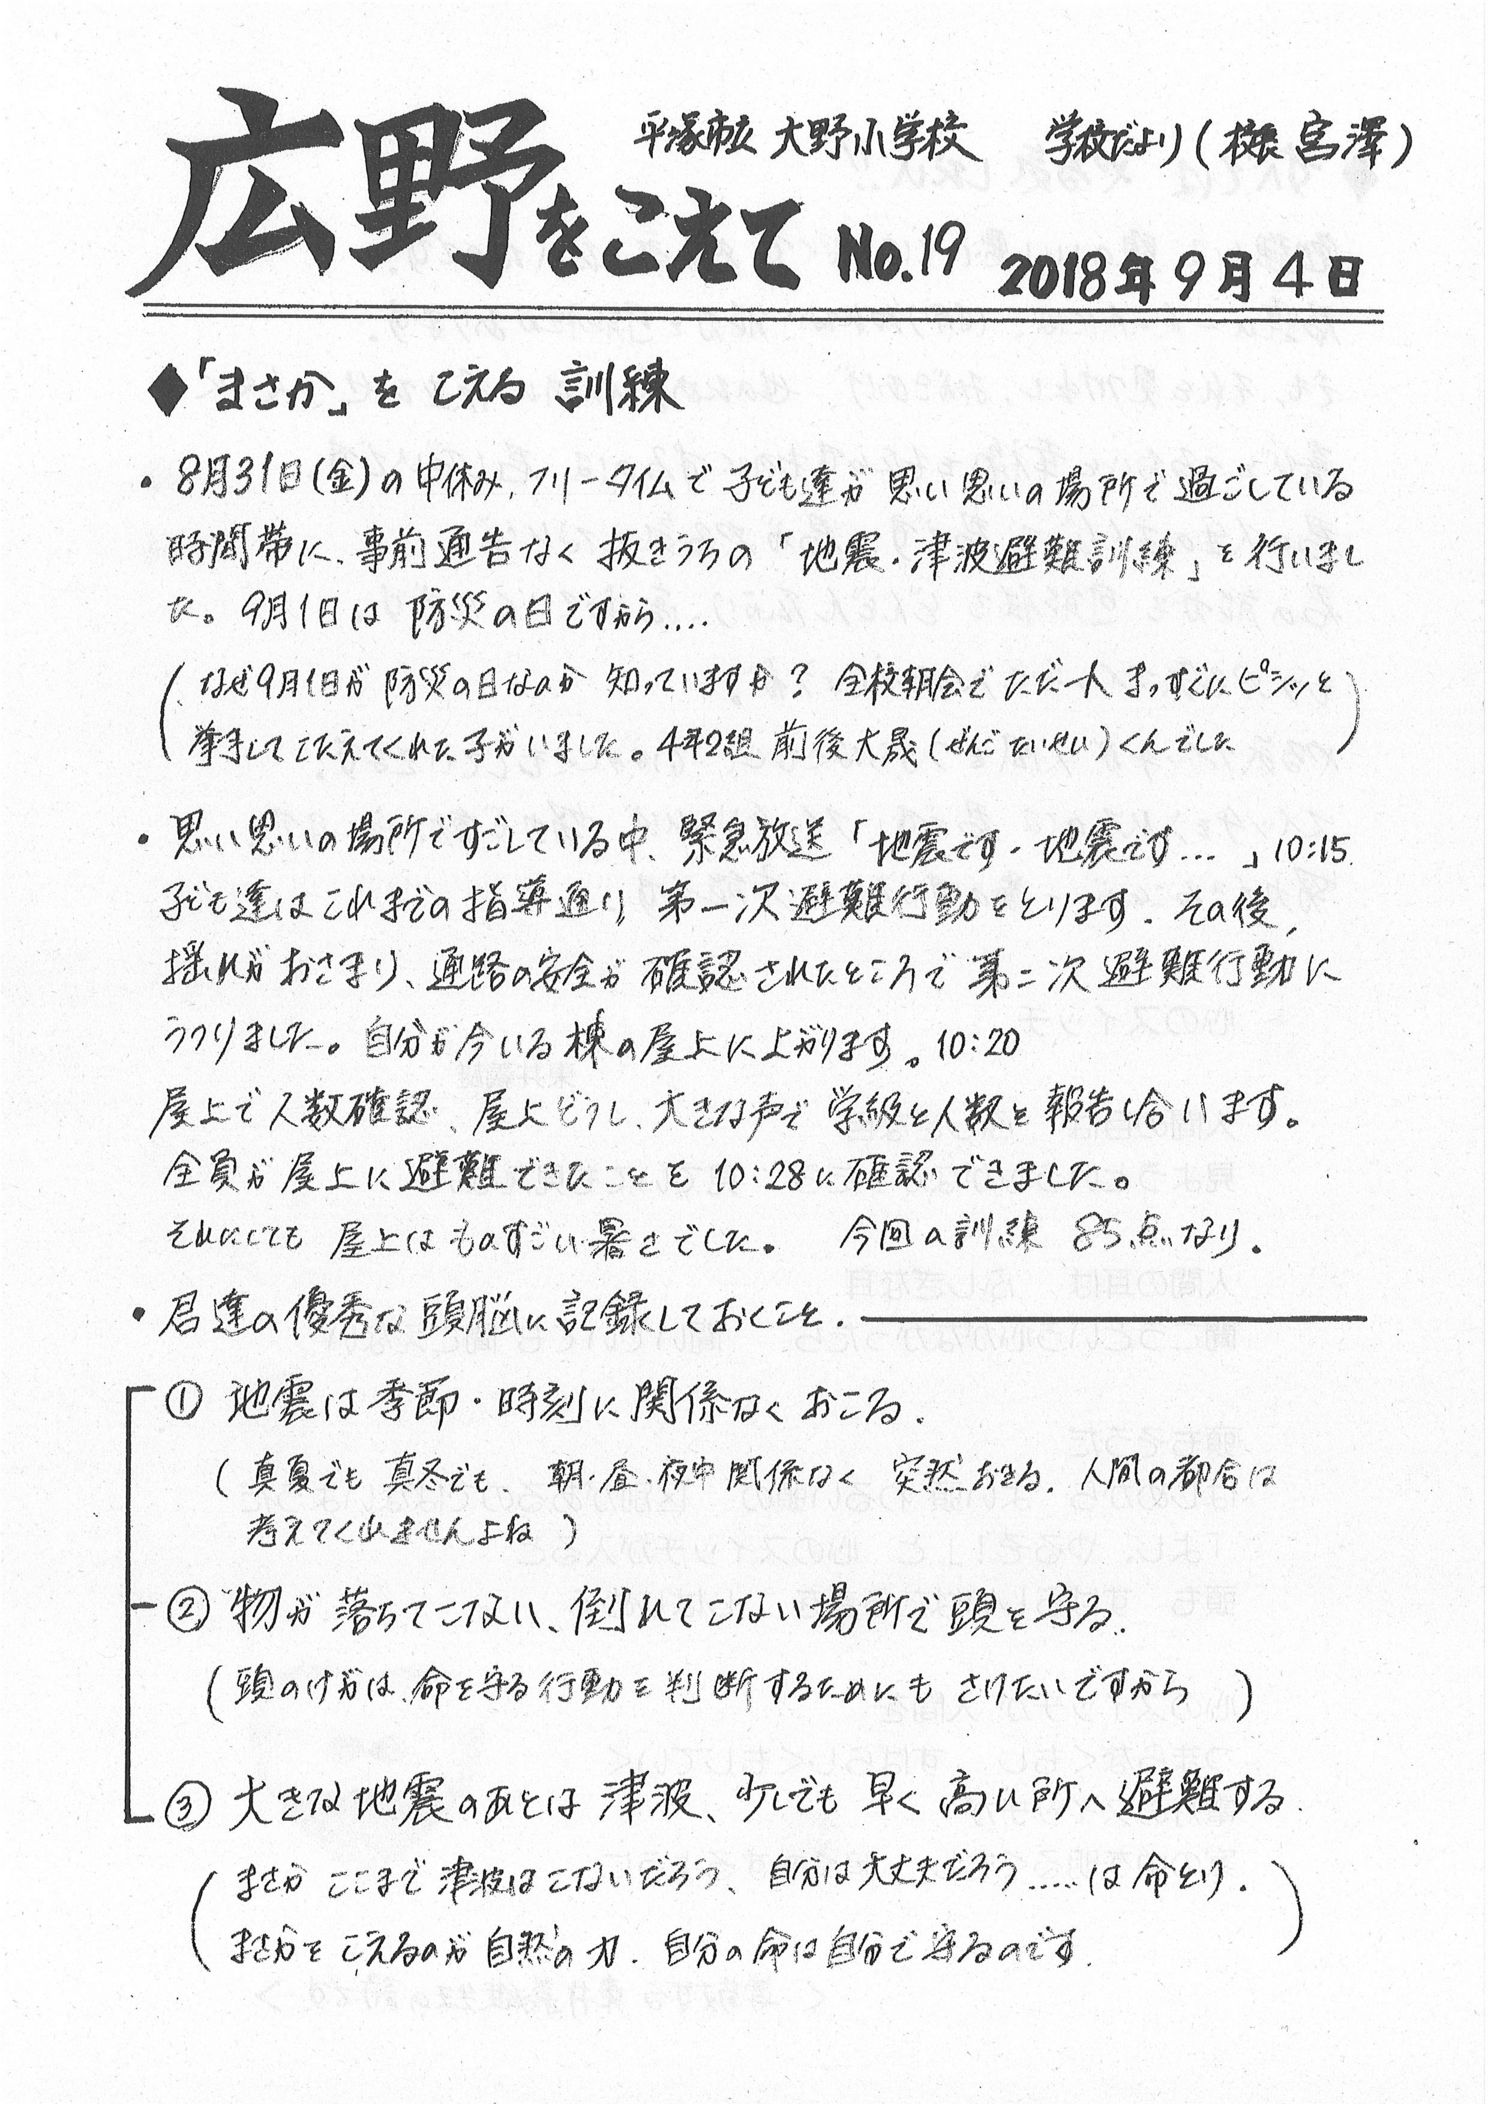 平塚市立 大野小学校 学校だより(校長 宮澤)
広野をこえて No.19 2018年9月4日
◆「まさか」を こえる 訓練
・8月31日(金)の中休み、フリータイムで 子ども達が 思い思いの場所で過ごしている
時間帯に、事前通告なく 抜きうちの「地震・津波避難訓練」を行いまし
た。9月1日は 防災の日ですから....
(なぜ9月1日が 防災の日なのか 知っていますか? 全校朝会で ただ一人 まっすぐにピシッと
挙手して こたえてくれた子がいました。4年2組 前後大晟(ぜんごたいせい)くんでした)
・思い思いの場所ですごしている中、緊急放送「地震です・地震です...」10:15.
子ども達は これまでの指導通り 第一次避難行動をとります. その後,
揺れが おさまり、通路の安全が 確認されたところで 第二次 避難行動に
うつりました。自分が今いる棟の屋上に上がります。10:20
屋上で 人数確認、屋上どうし、大きな声で 学級と人数を 報告し合います。
全員が屋上に避難できたことを 10:28に確認できました。
それにしても 屋上は ものすごい暑さでした。 今回の訓練 85点なり.
・君達の優秀な頭脳に記録しておくこと.
① 地震は季節・時刻に関係なく おこる.
(真夏でも 真冬でも、朝・昼・夜中 関係なく 突然おきる. 人間の都合は
考えてくれませんよね)
② 物が 落ちてこない、倒れてこない場所で 頭を守る.
(頭のけがは、命を守る行動を判断するためにも さけたいですから)
③ 大きな地震のあとは 津波、少しでも 早く 高い所へ避難する.
(まさか ここまで 津波はこないだろう、自分は大丈夫だろう.....は 命とり.
まさかを こえるのが 自然の力. 自分の命は自分で守るのです.)